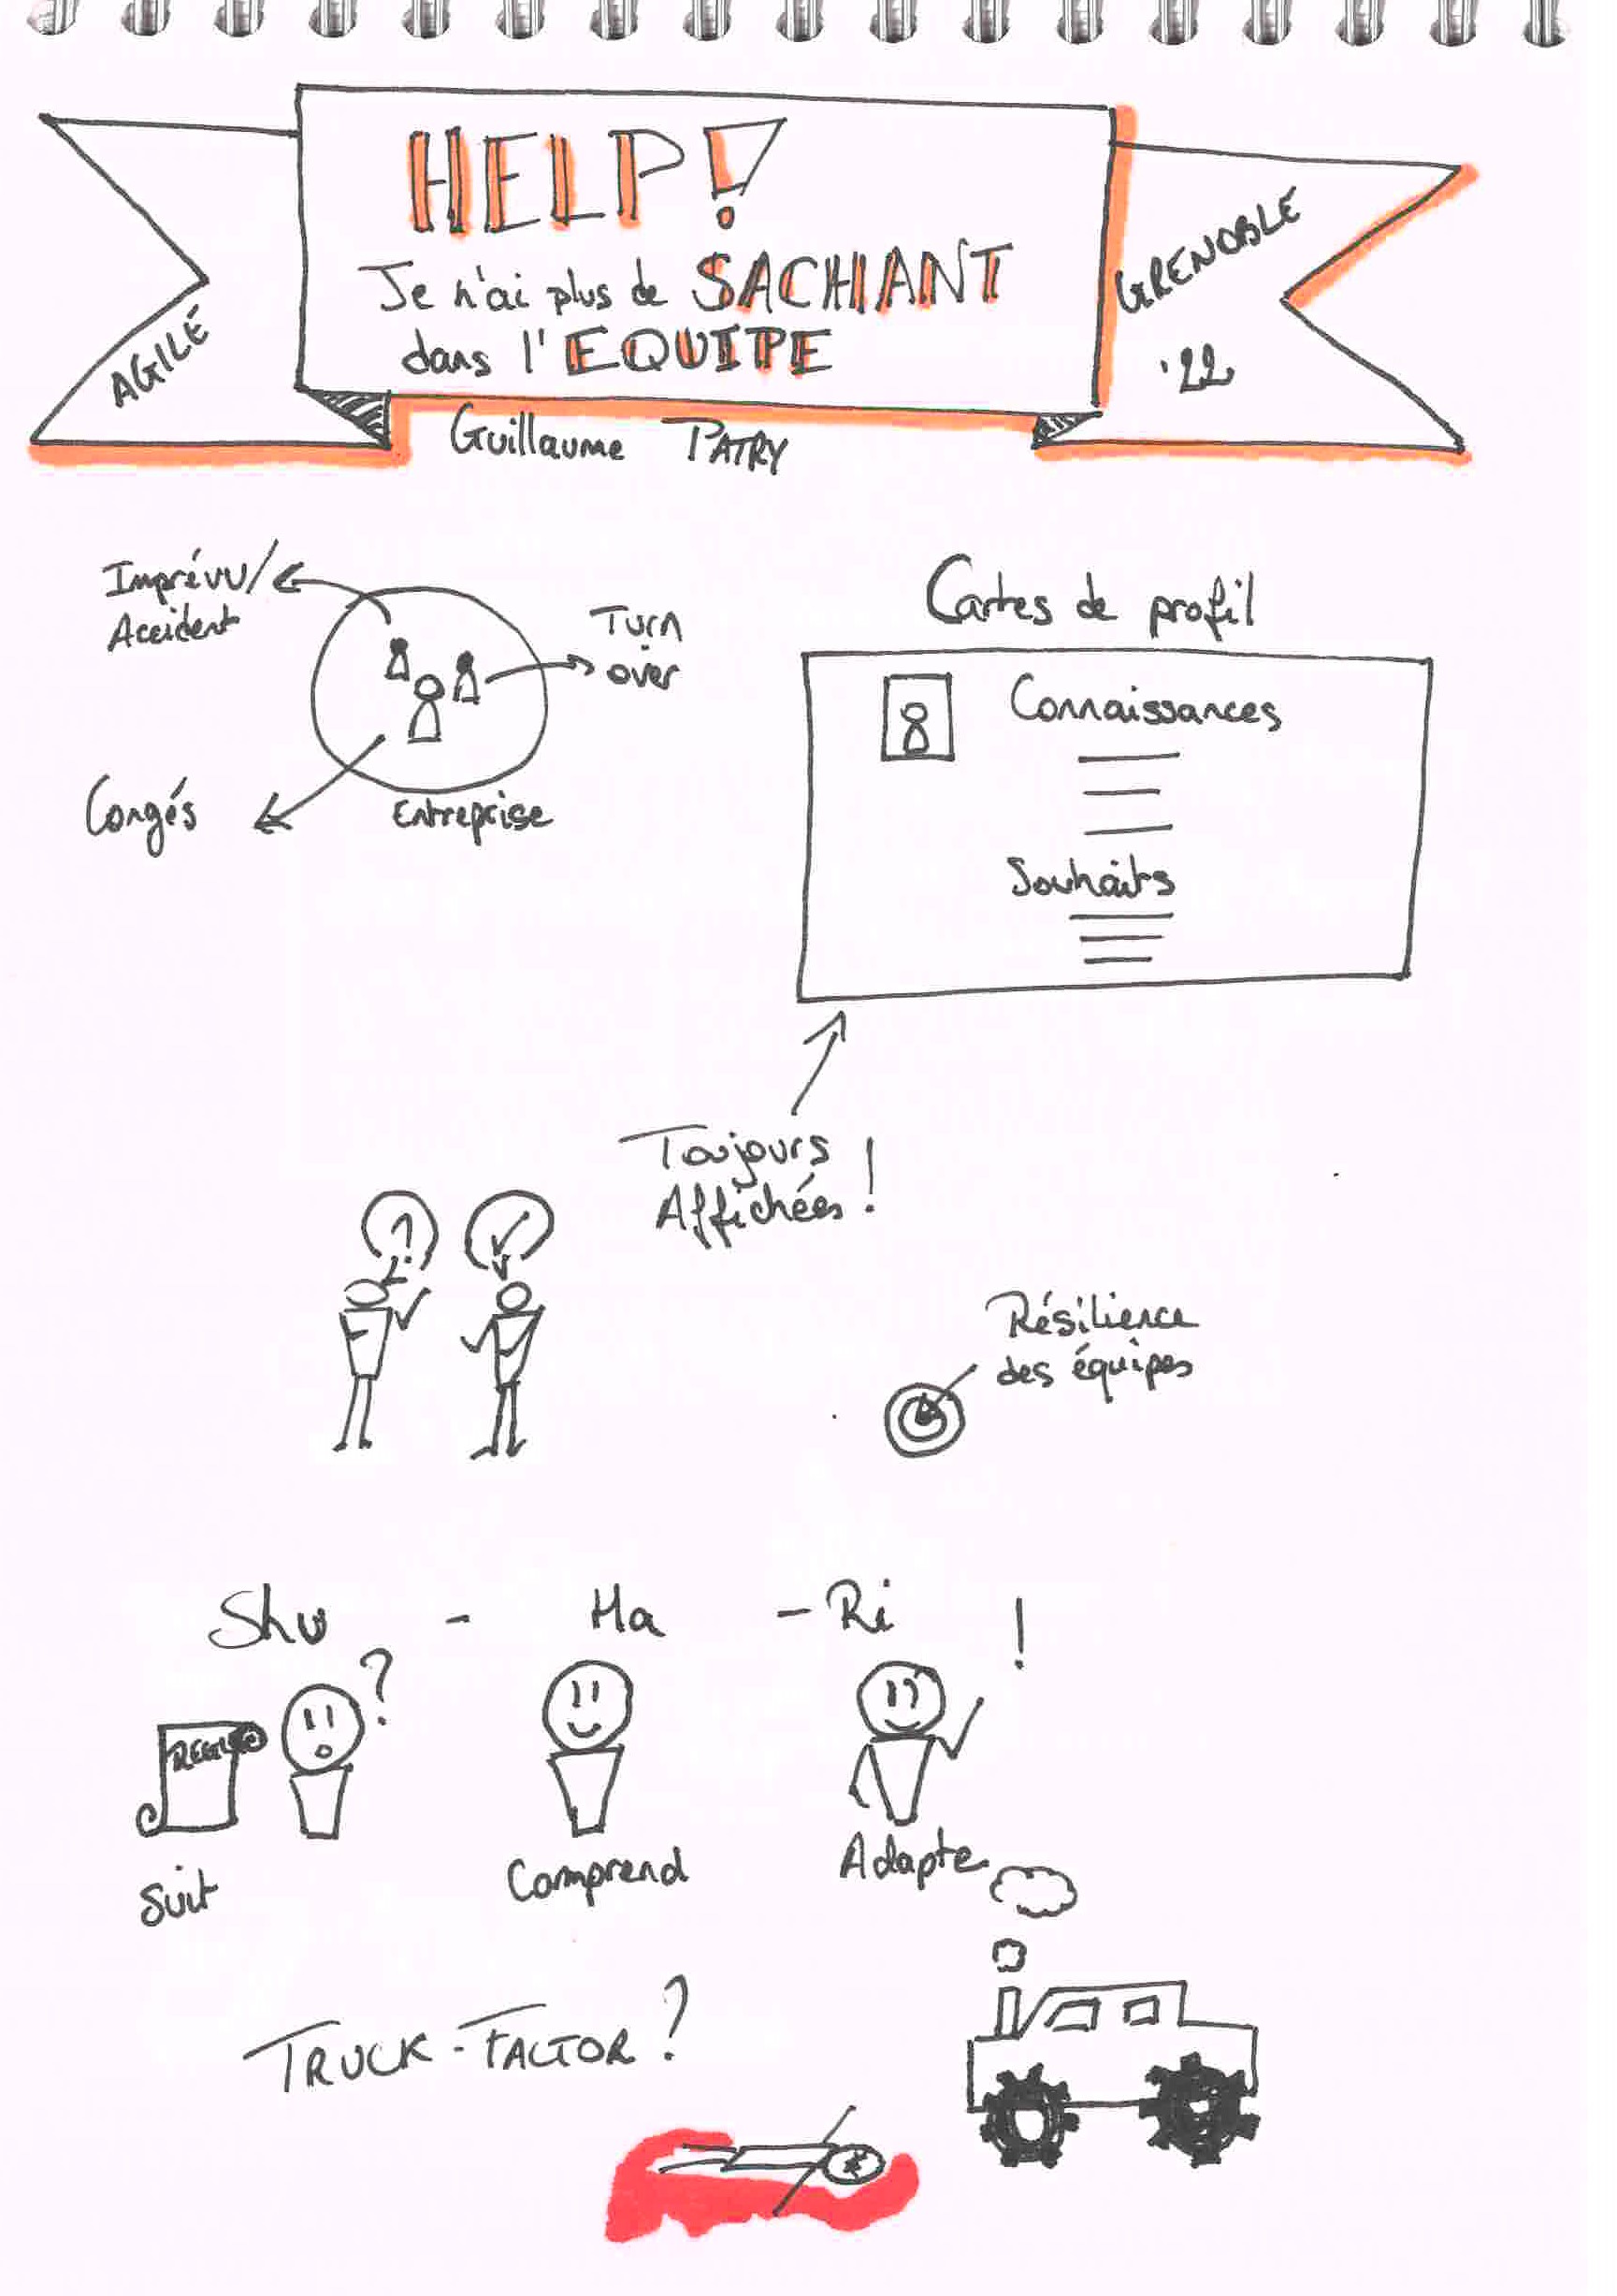 HELP!
Je n'ai plus de SACHANT
dans l'EQUIPE
AGILE
GRENOBLE
'22
Guillaume PATRY
Imprévu/
Accident
Turn
over
Congés
Entreprise
Cartes de profil
Connaissances
Souhaits
Toujours
Affichées !
?
Résilience
des équipes
Shu - Ha - Ri !
?
REGLE
Suit
Comprend
Adapte
TRUCK-FACTOR ?